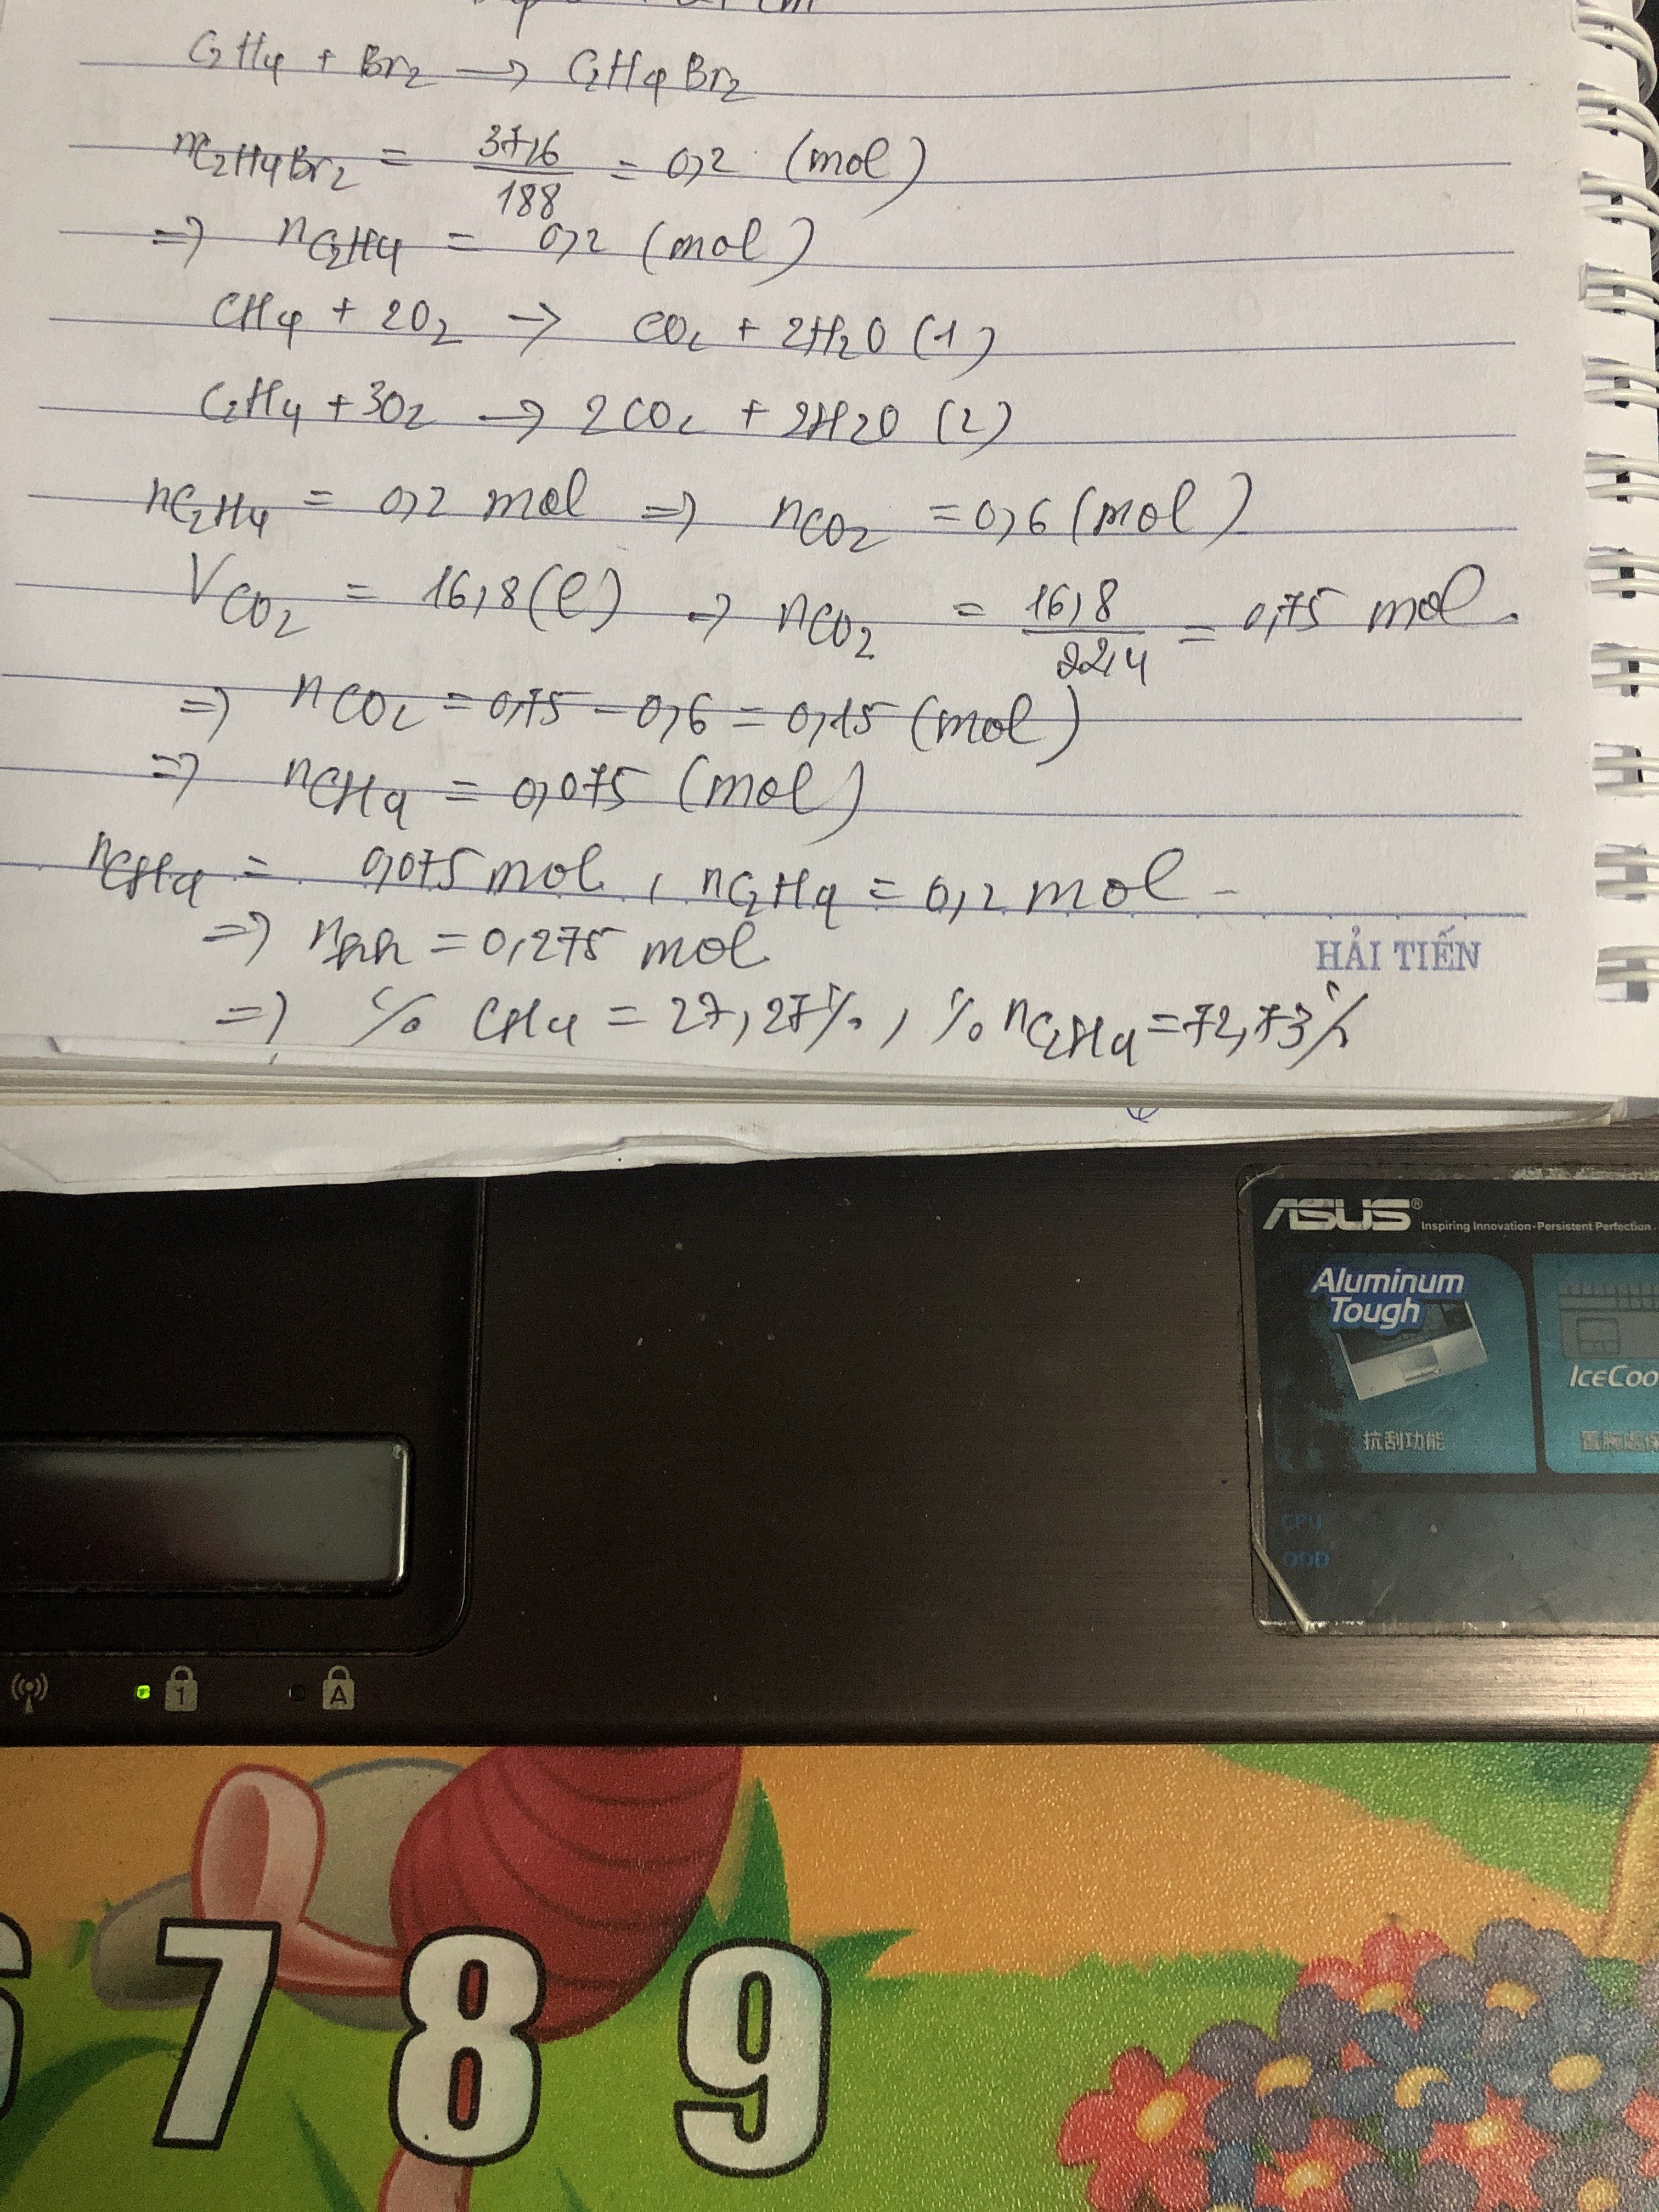 C2H4 + Br2 → C2H4Br2
nC2H4Br2 = 37,6/188 = 0,2 (mol)
=> nC2H4 = 0,2 (mol)
CH4 + 2O2 → CO2 + 2H2O (1)
C2H4 + 3O2 → 2CO2 + 2H2O (2)
nC2H4 = 0,2 mol => nCO2 = 0,6 (mol)
VCO2 = 16,8 (l) => nCO2 = 16,8/22,4 = 0,75 mol.
=> nCO2 = 0,75 - 0,6 = 0,15 (mol)
=> nCH4 = 0,075 (mol)
nCH4 = 0,075 mol, nC2H4 = 0,2 mol -
=> nhh = 0,275 mol
HẢI TIẾN
=> % CH4 = 27,27%, % nC2H4 = 72,73%
ASUS® Inspiring Innovation · Persistent Perfection
Aluminum
Tough
IceCoo
抗刮功能
CPU
ODD
1 A
6 7 8 9